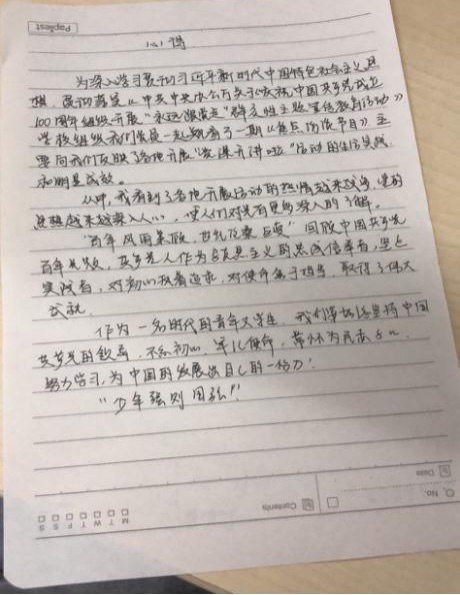 心得
为深入学习贯彻习近平新时代中国特色社会主义思
想,贯彻落实《中共中央办公厅关于庆祝中国共产党成立
100周年组织开展“永远跟党走”群众性主题宣传教育活动》
学校组织我们集体一起观看了一期《焦点访谈节目》主
要向我们反映了各地开展“党课开讲啦”活动的生动实践
和明显成效。
从中,我看到了各地开展活动的热情越来越高,党的
思想越来越深入人心,使人们对党有更为深入的了解。
“百年风雨兼程,世纪沧桑巨变”回顾中国共产党
百年光辉,共产党人作为马克思主义的忠诚信奉者,坚定
实践者,对初心执着追求,对使命勇于担当,取得了伟大
成就
作为一名时代的青年大学生,我们要坚持中国
共产党的领导,不忘初心,牢记使命,常怀为民
努力学习,为中国的发展出自己的一份力!
“少年强则国强!”
Papliest
No.
Date
Contents
M T W T F S S